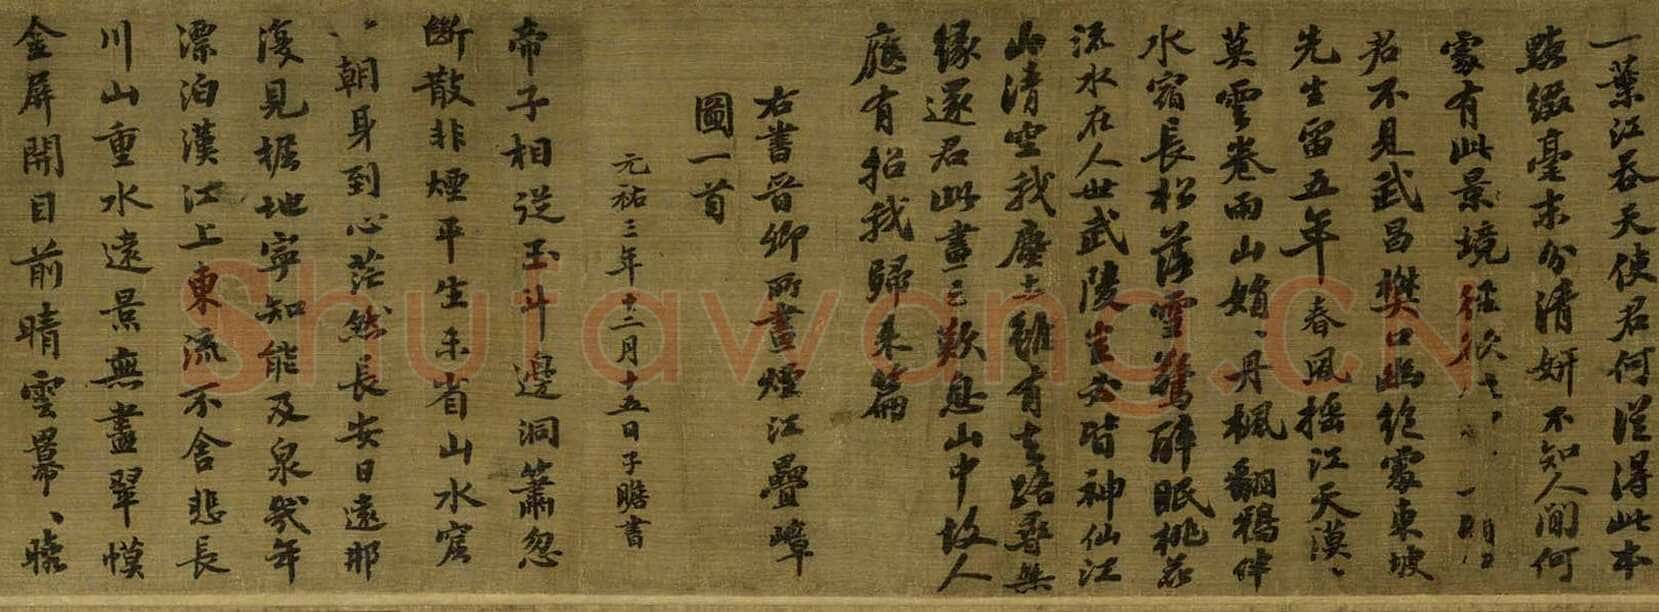 一葉江吞天使君何從得此本
點綴毫末分清妍不知人間何
處有此景境徑欲
君不見武昌樊口幽絕處東坡
先生留五年春風搖江天漠、
莫雲卷雨山娟、丹楓翻鴉伴
水宿長松落雪驚醉眠桃花
流水在人世武陵豈必皆神仙江
山清空我塵土雖有去路尋無
緣還君此畫三歎息山中故人
應有招我歸來篇
右書晉卿所畫煙江疊嶂
圖一首
元祐三年十二月十五日子瞻書
帝子相從玉斗邊洞簫忽
斷散非煙平生未省山水窟
一朝身到心茫然長安日遠那
復見掘地寧知能及泉幾年
漂泊漢江上東流不舍悲長
川山重水遠景無盡翠幙
金屏開目前晴雲羃、曉
Shufawang.CN